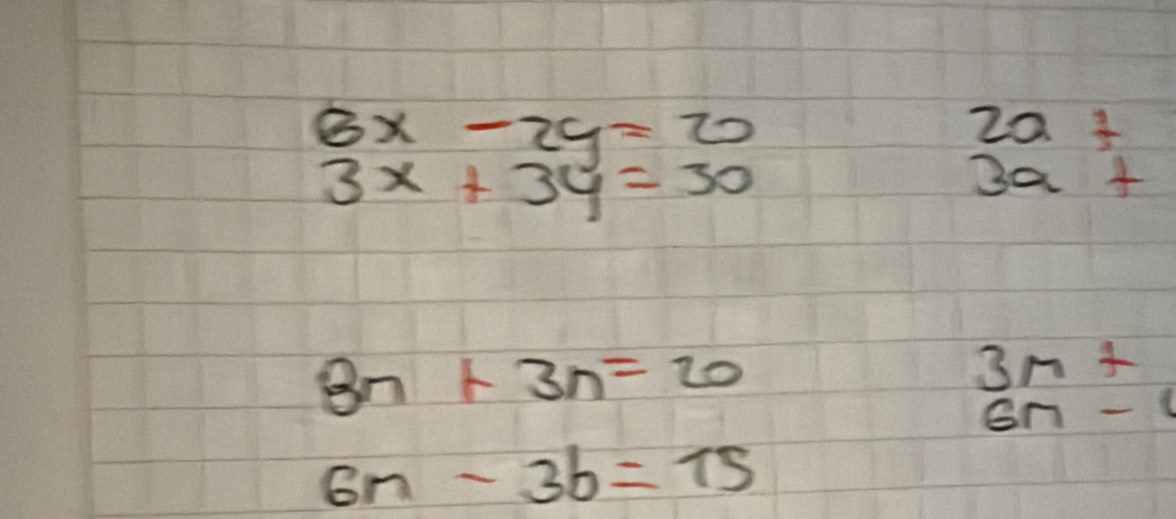 6x - 2y = 20
3x + 3y = 30
2a +
3a +
8m + 3n = 20
6m - 3b = 15
3m +
6m -